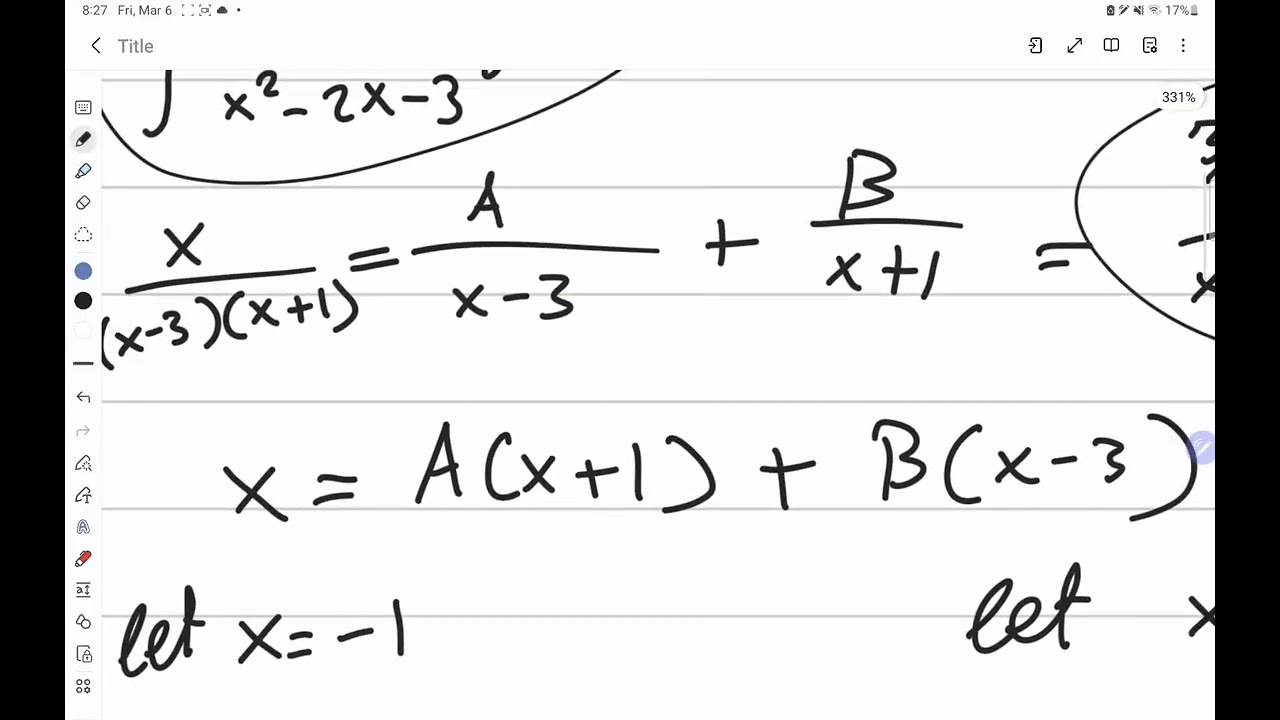 8:27 Fri, Mar 6 17%
Title
331%
∫ x² - 2x - 3
x/(x-3)(x+1) = A/x-3 + B/x+1 =
x = A(x+1) + B(x-3)
let x = -1 let x